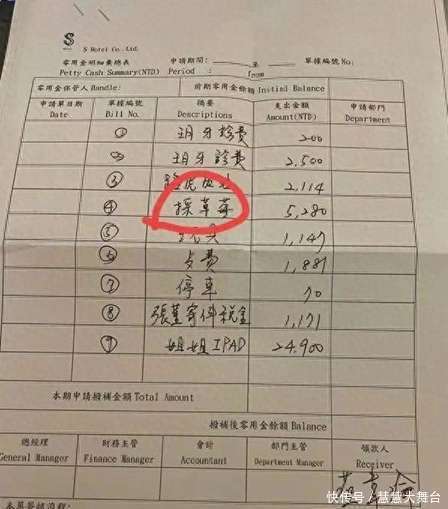 S
S Hotel Co., Ltd.
零用金明細彙總表 申請期間: 至 單據編號No:
Petty Cash Summary(NTD) Period : from
零用金保管人 Handle: 前期零用金餘額 Initial Balance
申請單日期 單據編號 摘要 支出金額 申請部門
Date Bill No. Descriptions Amount(NTD) Department
① 玥牙診費 200
② 玥牙診費 2,500
③ 2,114
④ 採草莓 5,280
⑤ 1,147
⑥ 費 1,887
⑦ 停車 70
⑧ 張蘭寄件税金 1,171
⑨ 姐姐IPAD 24,900
本期申請撥補金額 Total Amount
撥補後零用金餘額 Balance
總經理 財務主管 會計 部門主管 領款人
General Manager Finance Manager Accountant Department Manager Receiver
快传号/慧慧大舞台